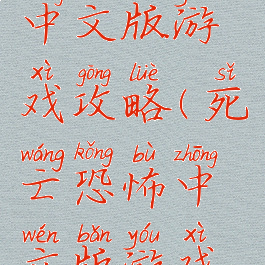 中文版游
xì gōng lüè sǐ
戏攻略(死
wáng kǒng bù zhōng
亡恐怖中
wén bǎn yóu xì
文版游戏